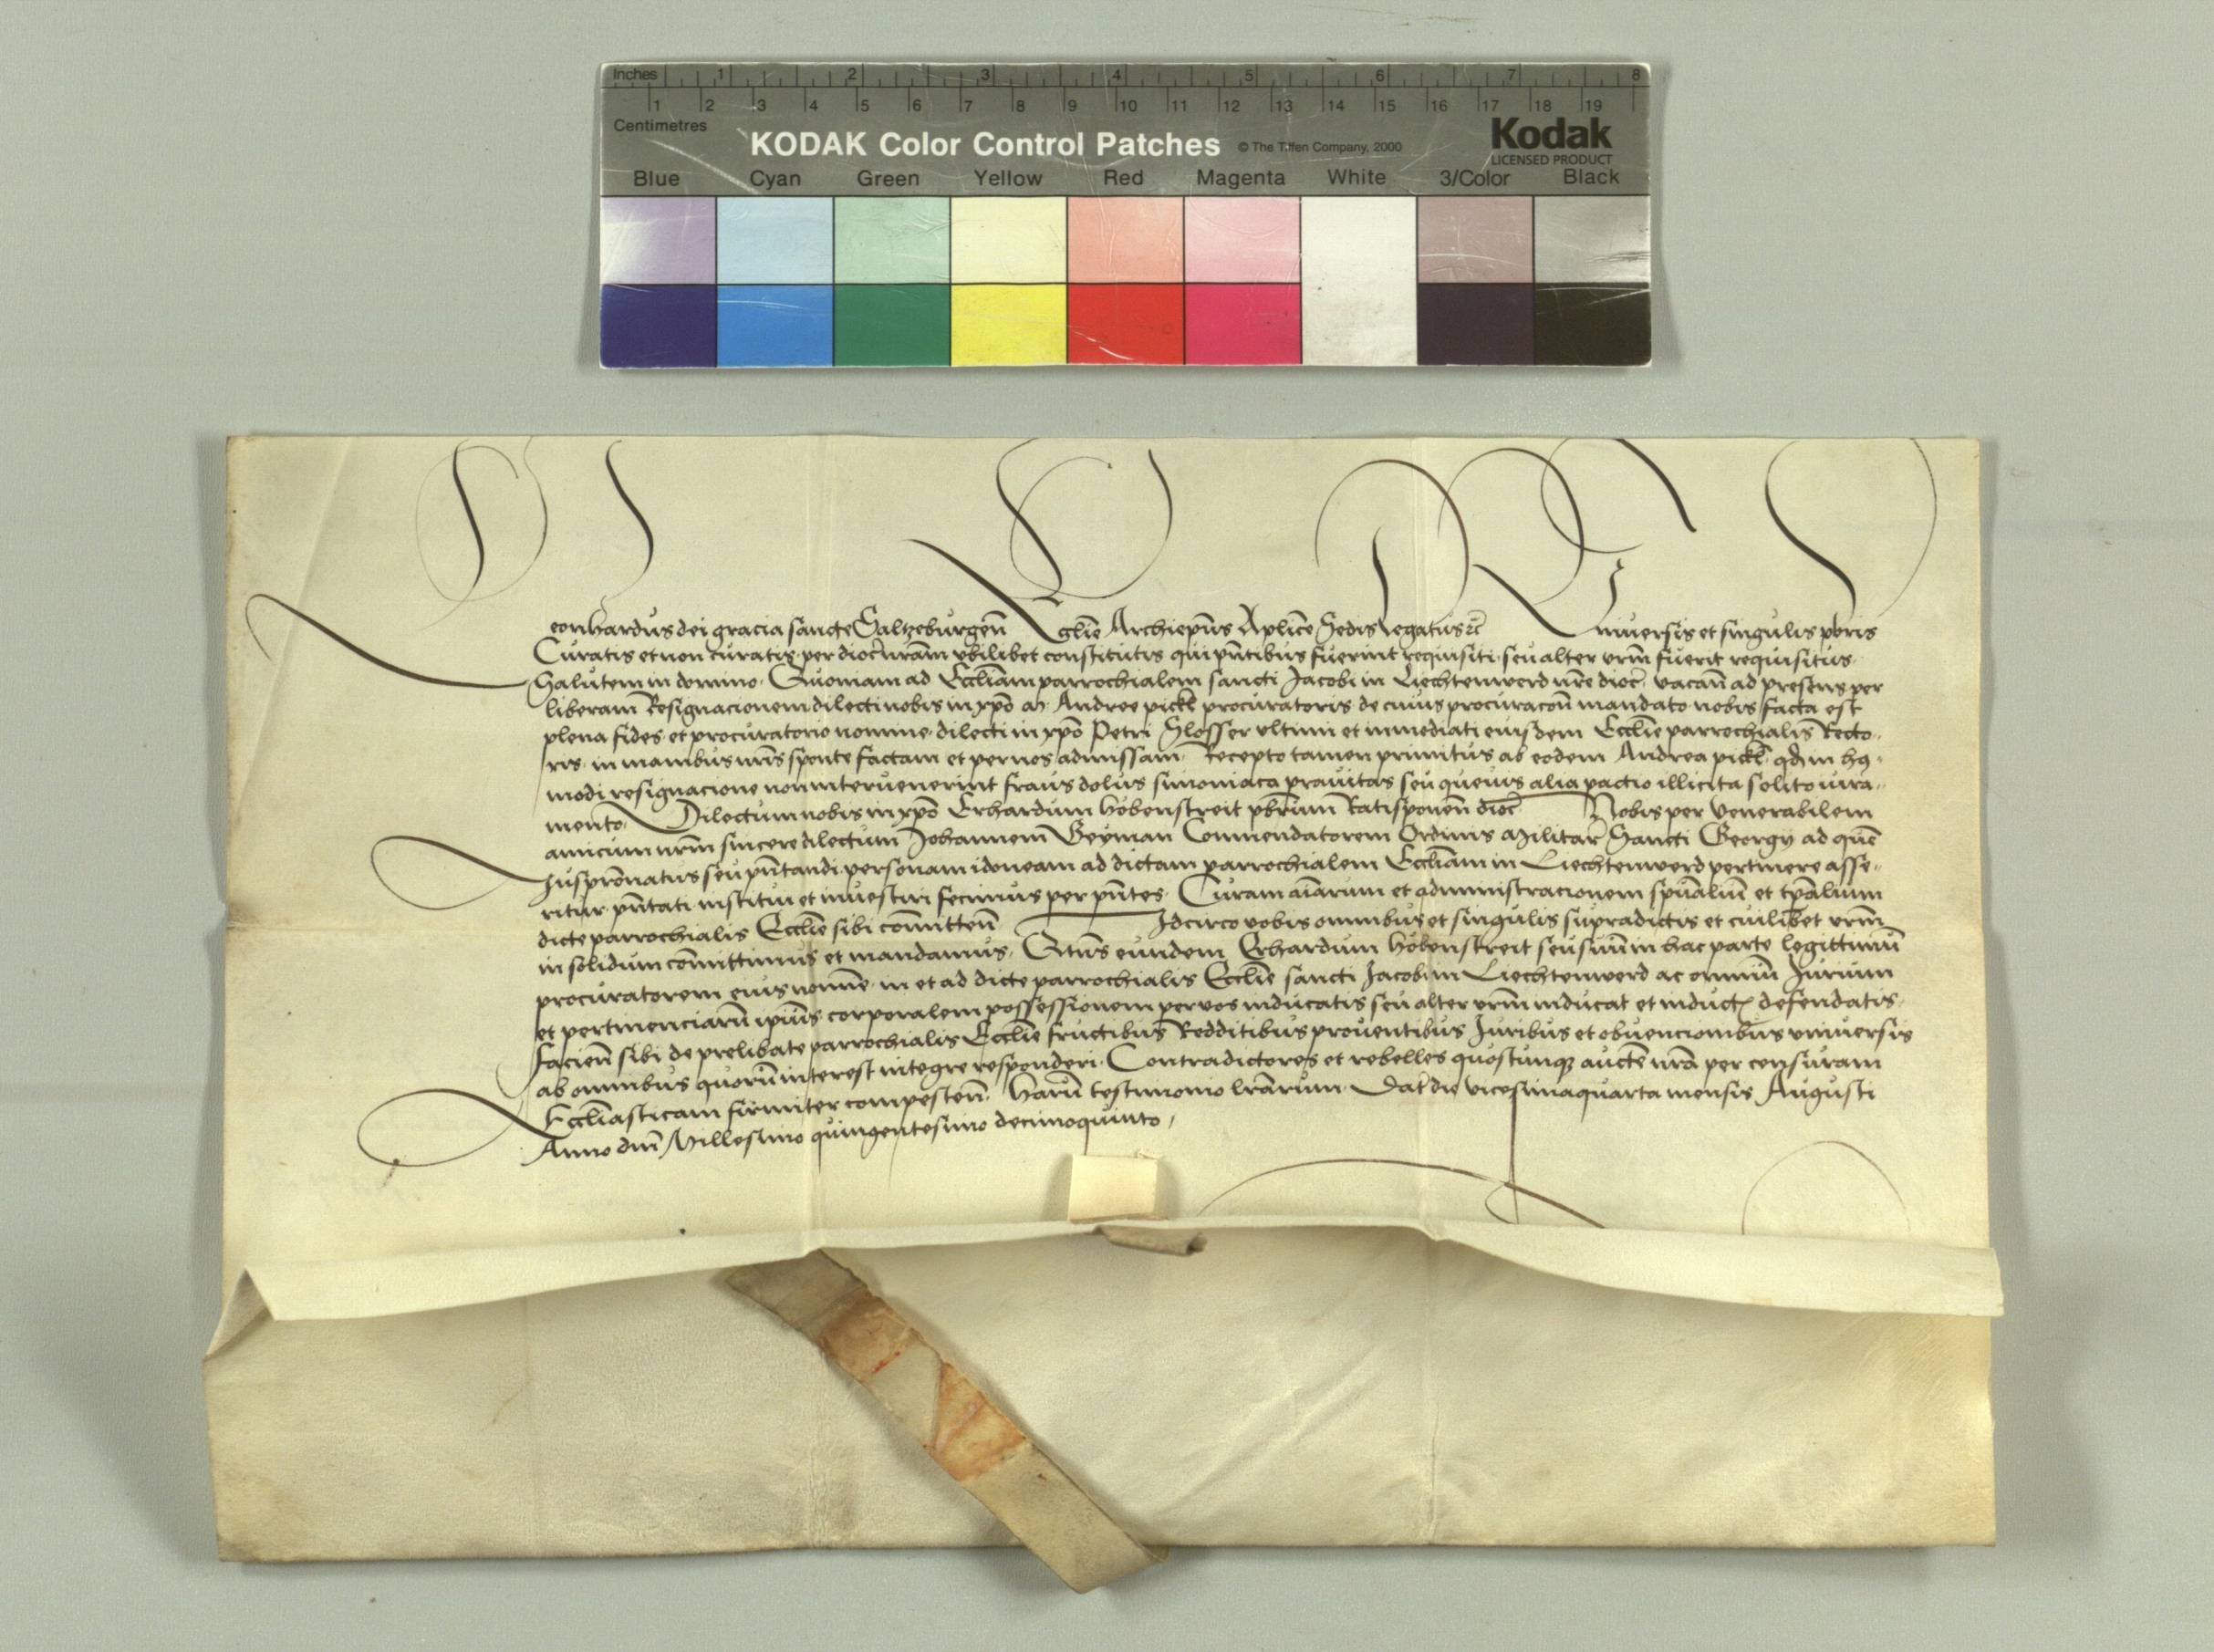 Inches 1 2 3 4 5 6 7 8
1 2 3 4 5 6 7 8 9 10 11 12 13 14 15 16 17 18 19
Centimetres
KODAK Color Control Patches © The Tiffen Company, 2000 Kodak
LICENSED PRODUCT
Blue Cyan Green Yellow Red Magenta White 3/Color Black
Leonhardus dei gracia sancte Saltzeburgen̄ Eccl̄ie Archiep̄us Ap̄lice Sedis Legatus ꝛc̄ Vniuersis et singulis p̄bris
Curatis et non curatis per dioc̄ nr̄am vbilibet constitutis qui pn̄tibus fuerint requisiti seu alter vr̄m fuerit requisitus
Salutem in domino. Quoniam ad Eccl̄iam parrochialem sancti Jacobi in Liechtenwerd nr̄e dioc̄. vacan̄ ad presens per
liberam Resignacionem dilecti nobis in xp̄o Andree pickl procuratoris de cuius procuracōn mandato nobis facta est
plena fides et procuratorio nomine dilecti in xp̄o Petri Slosser vltimi et inmediati eiusdem Eccl̄ie parrochialis Recto-
ris in manibus nr̄is sponte factam et per nos admissam. Recepto tamen primitus ab eodem Andrea pickl qd̄ in hꝰ-
modi resignacione non interuenerint fraus dolus simoniaca prauitas seu queuis alia pactio illicita solito iura-
mento. Dilectum nobis in xp̄o Erhardum hobenstreit pb̄rum Ratisponen̄ dioc̄ Nobis per Venerabilem
amicum nr̄m sincere dilectum Johannem Geyman Commendatorem Ordinis Militar̄ Sancti Georgij ad quē
Jus pr̄onatus seu pn̄tandi personam idoneam ad dictam parrochialem Eccl̄iam in Liechtenwerd pertinere asse-
ritur pn̄tati institui et inuestiri fecimus per pn̄tes. Curam aīarum et administracionem spūaliū et tp̄alium
dicte parrochialis Eccl̄ie sibi cōmitten̄ Idcirco vobis omnibus et singulis supradictis et cuilibet vr̄m
in solidum cōmittimus et mandamus. Qtus̄ eundem Erhardum hobenstreit seu suū in hac parte legittimū
procuratorem eius nomīe in et ad dicte parrochialis Eccl̄ie sancti Jacobi in Liechtenwerd ac omniū Jurium
et pertinenciarū ip̄ius corporalem possessionem per vos inducatis seu alter vr̄m inducat et induct̄ defendatis
Facien̄ sibi de prelibate parrochialis Eccl̄ie fructibus Redditibus prouentibus Juribus et obuencionibus vniuersis
ab omnibus quorū interest integre responderi. Contradictores et rebelles quoscunqꝫ auctē nr̄a per censuram
Eccl̄iasticam firmiter compescen̄. harū testimonio lr̄arum. Dat̄ die vicesimaquarta mensis Augusti
Anno dn̄i Millesimo quingentesimo decimoquinto